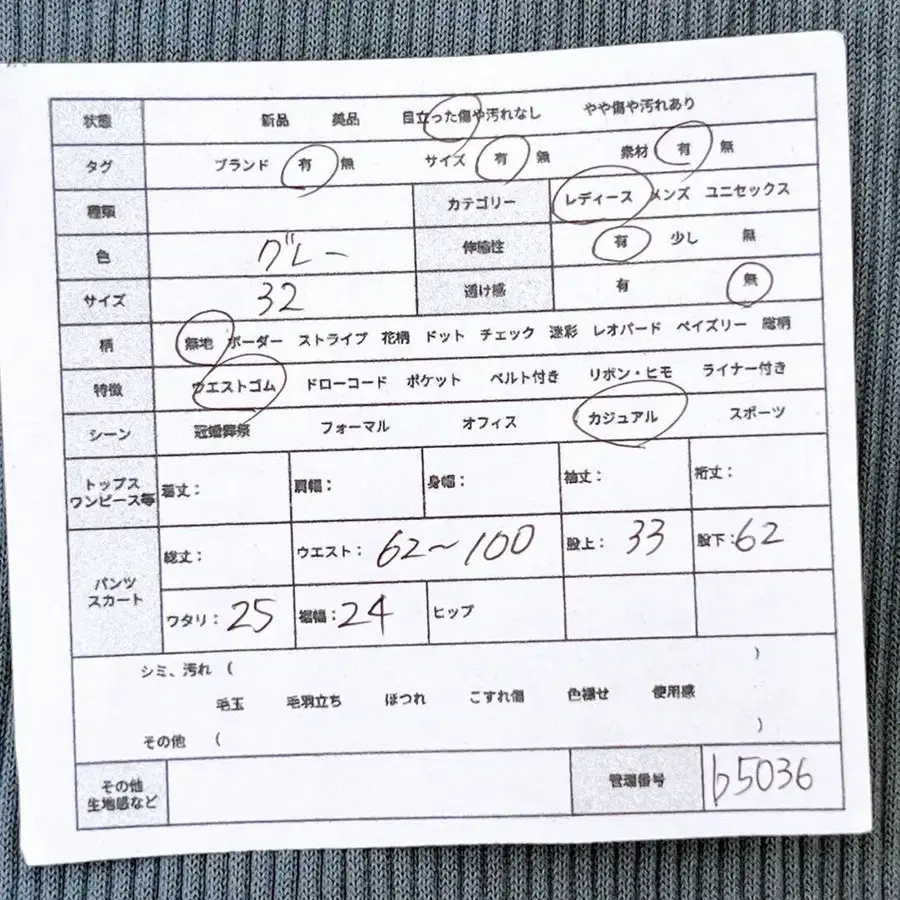 状態 新品 美品 目立った傷や汚れなし やや傷や汚れあり
タグ ブランド 有 無 サイズ 有 無 素材 有 無
種類 カテゴリー レディース メンズ ユニセックス
色 グレー 伸縮性 有 少し 無
サイズ 32 透け感 有 無
柄 無地 ボーダー ストライプ 花柄 ドット チェック 迷彩 レオパード ペイズリー 総柄
特徴 ウエストゴム ドローコード ポケット ベルト付き リボン・ヒモ ライナー付き
シーン 冠婚葬祭 フォーマル オフィス カジュアル スポーツ
トップス
ワンピース等
着丈: 肩幅: 身幅: 袖丈: 裄丈:
パンツ
スカート
総丈: ウエスト: 62~100 股上: 33 股下: 62
ワタリ: 25 裾幅: 24 ヒップ
シミ、汚れ ( )
毛玉 毛羽立ち ほつれ こすれ傷 色褪せ 使用感
その他 ( )
その他
生地感など
管理番号 b5036